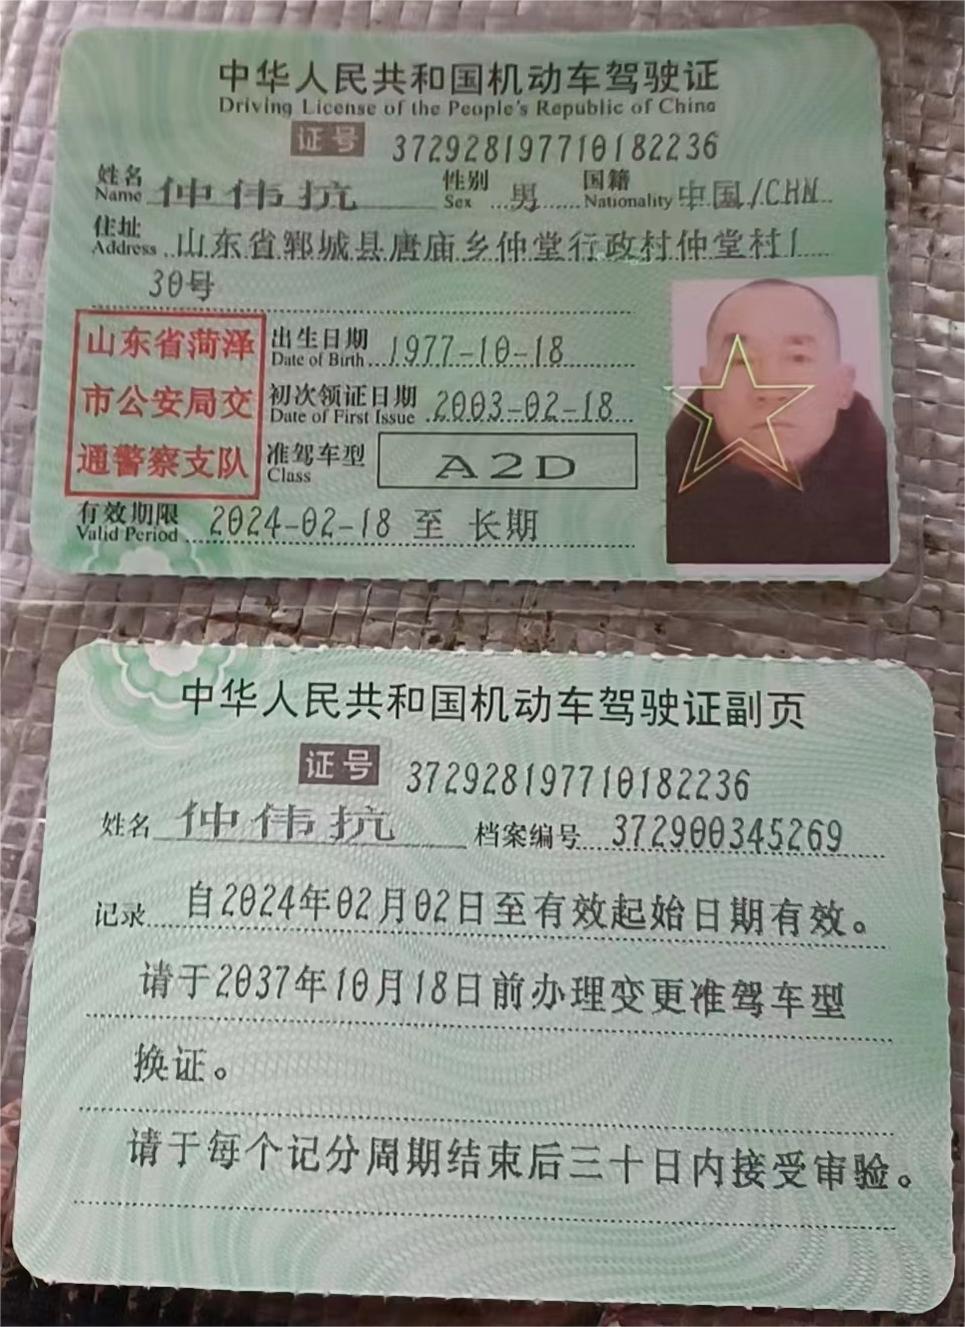 中华人民共和国机动车驾驶证
Driving License of the People's Republic of China
证号 372928197710182236
姓名 仲伟抗 性别 男 国籍 中国/CHN
Name Sex Nationality
住址 山东省郓城县唐庙乡仲堂行政村仲堂村1
Address
30号
山东省菏泽
市公安局交
通警察支队
出生日期 1977-10-18
Date of Birth
初次领证日期 2003-02-18
Date of First Issue
准驾车型 A2D
Class
有效期限 2024-02-18 至 长期
Valid Period
中华人民共和国机动车驾驶证副页
证号 372928197710182236
姓名 仲伟抗 档案编号 372900345269
记录 自2024年02月02日至有效起始日期有效。
请于2037年10月18日前办理变更准驾车型
换证。
请于每个记分周期结束后三十日内接受审验。